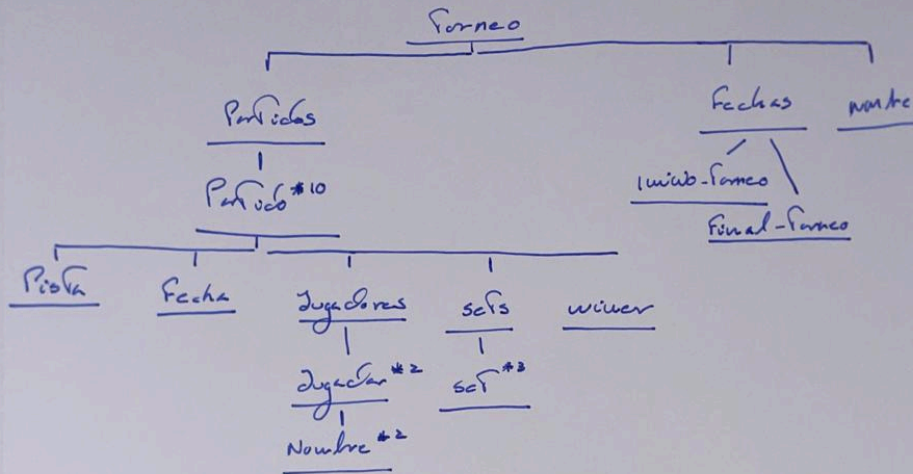 Torneo
Partidos
Fechas
nombre
Partido *10
inicio-Torneo
Final-Torneo
Pista
Fecha
Jugadores
seTs
winer
Jugador *2
seT *3
Nombre *2